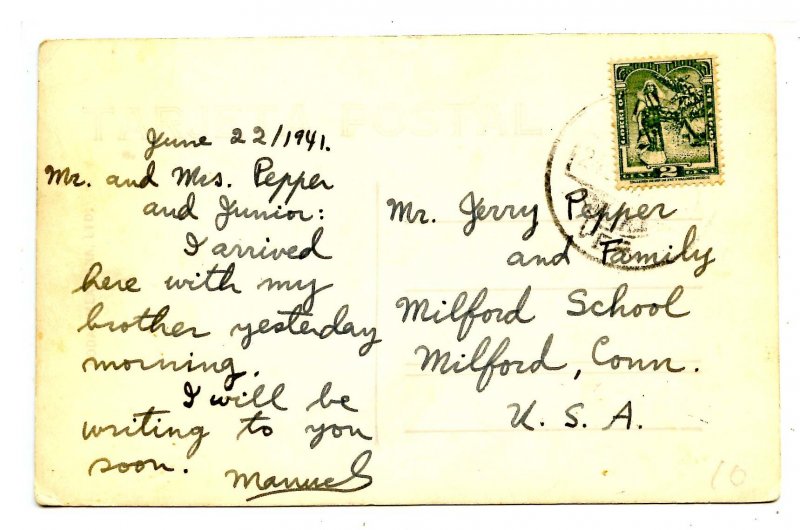 TARJETA POSTAL
June 22/1941.
Mr. and Mrs. Pepper
and Junior:
I arrived
here with my
brother yesterday
morning.
I will be
writing to you
soon.
Manuel
CORREOS
MEXICO
2
Mr. Jerry Pepper
and Family
Milford School
Milford, Conn.
U. S. A.
10